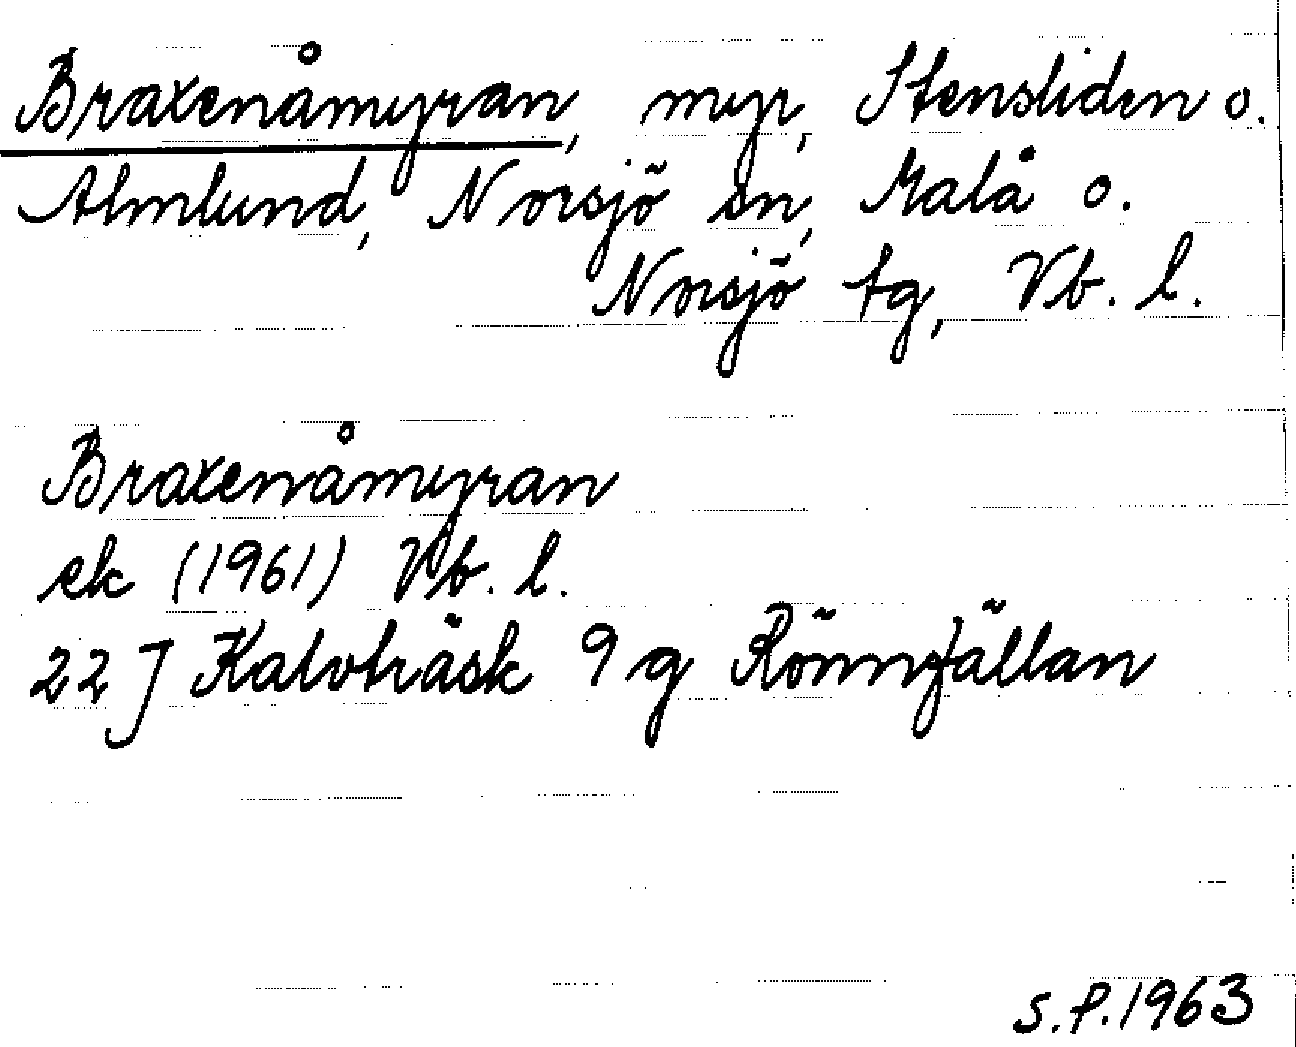 Braxenåmyran, myr, Stensliden o.
Almlund, Norsjö sn, Malå o.
Norsjö tg, Vb. l.
Braxenåmyran
ek (1961) Vb. l.
22 J Kalvträsk 9 g Rönnfällan
S.P. 1963